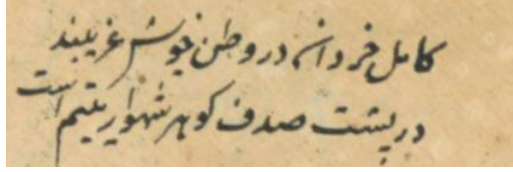 کامل خردان در وطن خویش غریبند
در پشت صدف کوهر شهوار یتیم است